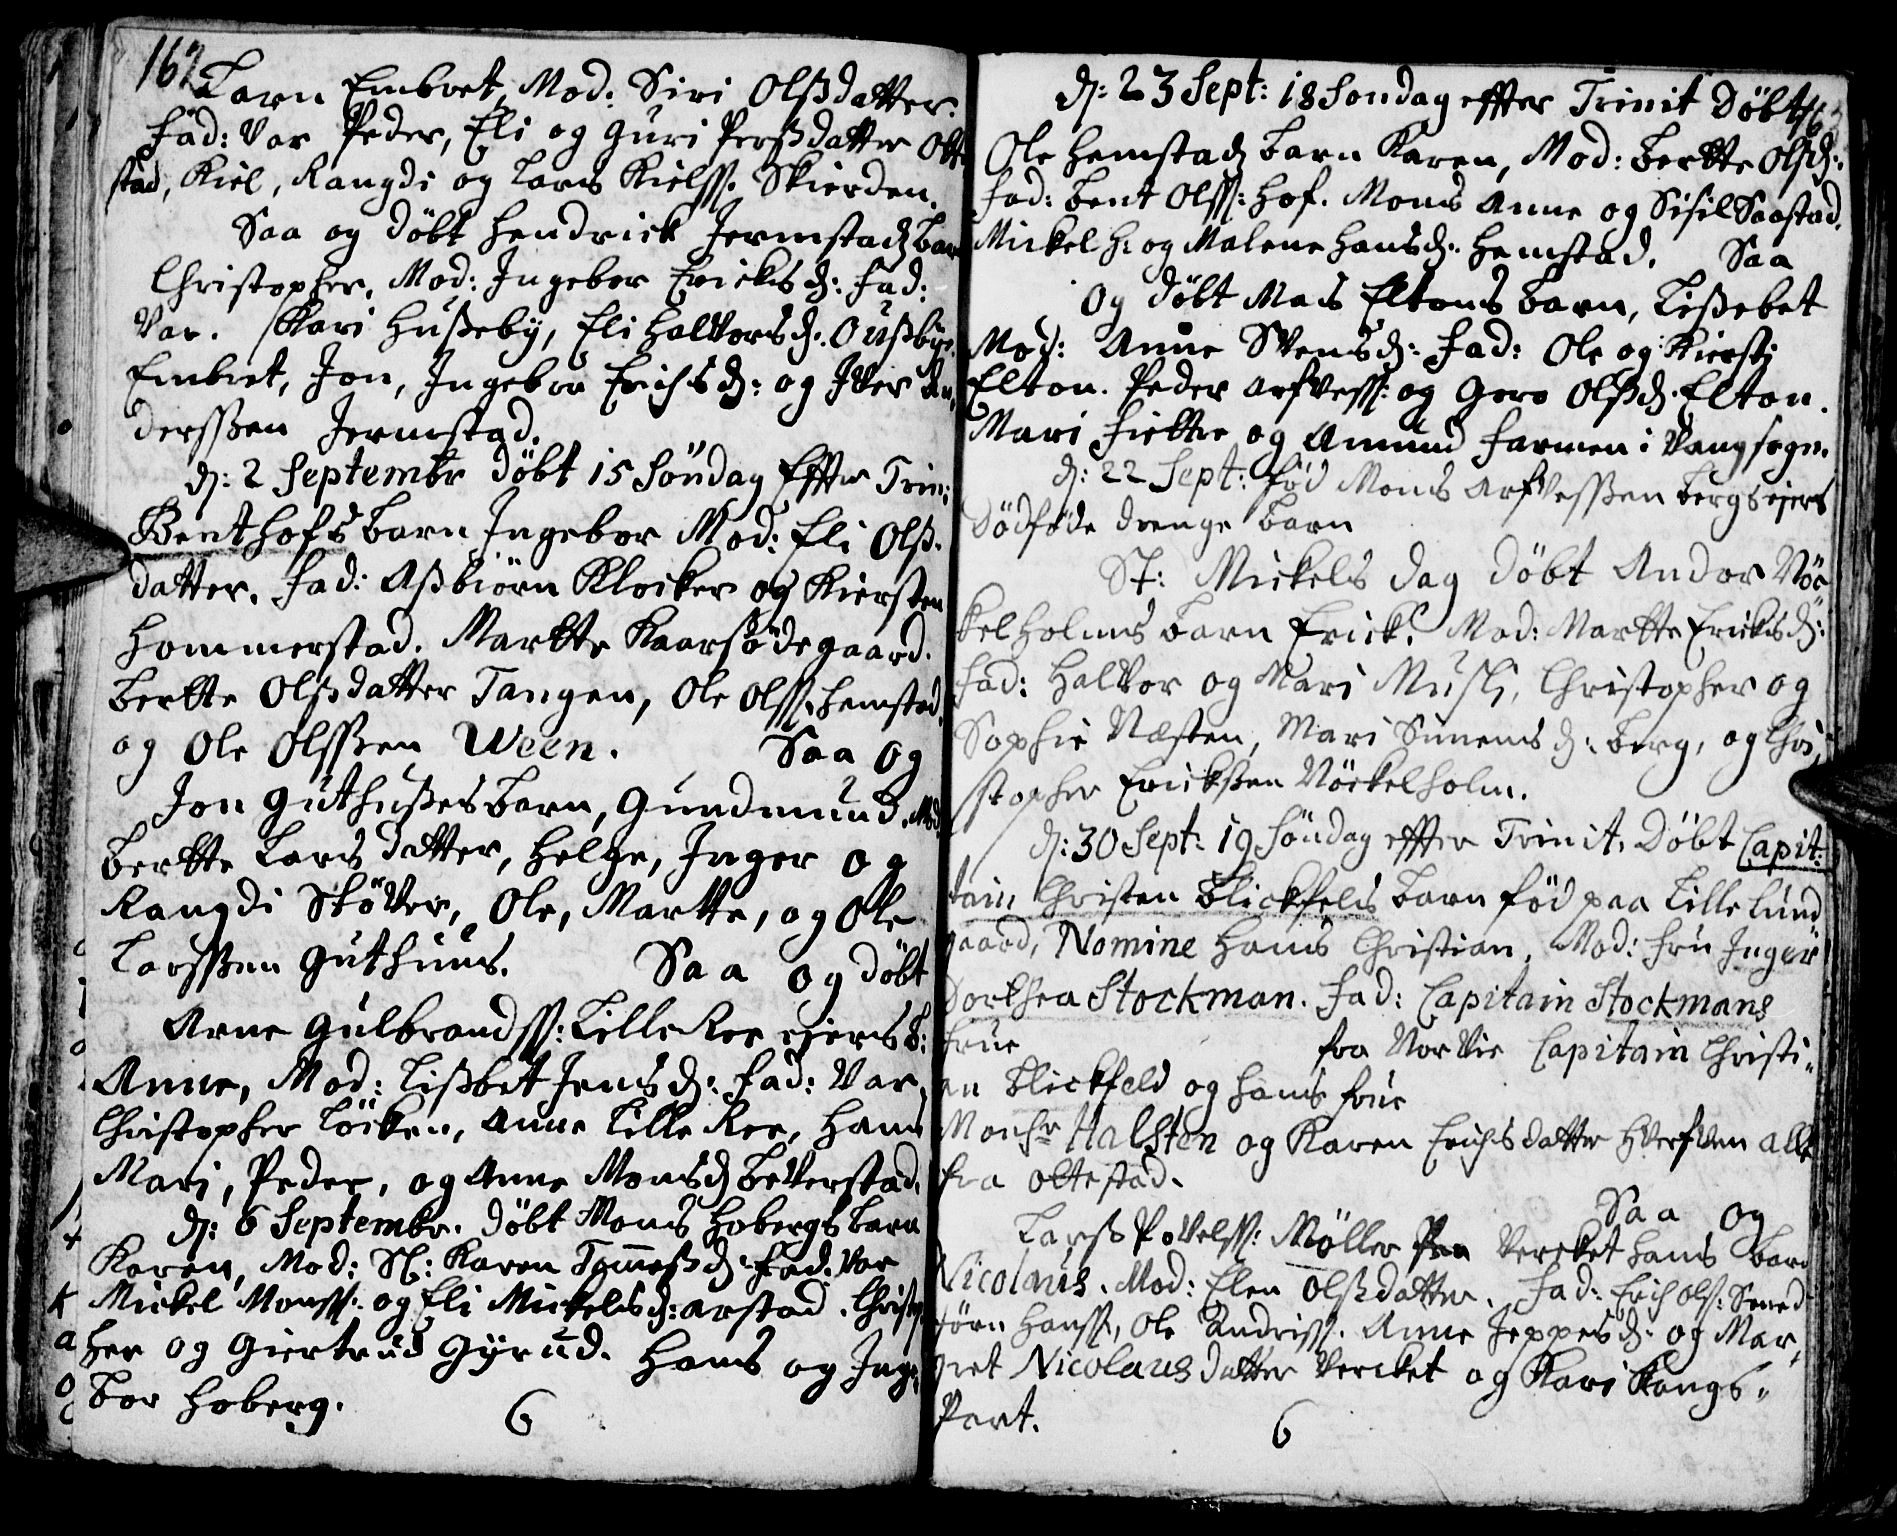 162
Barn Embret, Mod: Siri Olsdatter.
Fad: Var Peder, Eli og Guri Persdatter Otte
stad, Kiel, Rangdi og Lars Kielss. Skierden.
Saa og döbt Hendrick Jermstads Barn
Christopher, Mod: Ingebor Ericksd: Fad:
Var. Kari Husseby, Eli Halvorsd: Oussbye.
Embret, Jon, Ingebor Erichsd: og Iver An,
derssen Jermstad.
d: 2 Septembr döbt 15 Söndag Effter Trin:
Bent Hofs Barn Ingebor Mod: Eli Olss.
datter. Fad: Assbiörn Klocker og Kiersten
Hommerstad. Martte Kaarsödegaard.
Bertte Olssdatter Tangen, Ole Olss. Hemstad,
og Ole Olssen Ween. Saa og
Jon Guthusses Barn, Gundmund. Mod
Bertte Larsdatter, Helge, Inger og
Rangdi Skötter, Ole, Martte, og Ole
Larssen Guthuus. Saa og döbt
Arne Gulbrandss: Lille Ree eiers B:
Anne, Mod: Lissbet Jensd: Fad: Var,
Christopher Löcken, Anne Lille Ree, Hans
Mari, Peder, og Anne Monsd Beverstad.
d: 6 Septembr. döbt Mons Hobergs Barn
Karen, Mod: Sl: Karen Tommessd. Fad: Var
Mickel Monss: og Eli Mickelsd: Arstad. Christop,
her og Giertrud Gyrud. Hans og Inge,
bor Hoberg.
6
d: 23 Sept: 18 Sondag effter Trinit Döbt 163
Ole Hemstads Barn Karen, Mod: Bertte Olsd:
Fad: Bent Olss: Hof. Mons Anne og Sisil Saastad.
Mickel H: og Malene Hansd: Hemstad. Saa
og döbt Mas Eltons Barn, Lissebet
Mod: Anne Svensd: Fad: Ole og Kiersti
Elton. Peder Arfvess: og Goro Olssd. Elton.
Mari Fiettre og Amund Farmen i Vang sogn.
d: 22 Sept: född Mons Arfvessen Bergs eiers
Dödföde drenge Barn
St: Mickels Dag döbt Andor Nöc
kelholms Barn Erick. Mod: Martte Ericksd:
Fad: Halvor og Mari Musli, Christopher og
Sophie Næsten, Mari Simensd: Berg, og Chri,
stopher Erickssen Nöckelholm.
d: 30 Sept: 19 Söndag effter Trinit. Döbt Capit:
tain Christen Blickfelds Barn föd paa Lille Lund
gaard, Nomine Hans Christian, Mod: Fru Inger
Dorthea Stockman. Fad: Capitain Stockmans
Frue fra Norvie Capitain Christi,
an Blickfeld og hans frue
Monsr Halsten og Karen Erichsdatter Hverfven alle
fra Ottestad.
Saa og
Larss Povelss: Möller Paa Vercket hans Barn
Nicolaus. Mod: Elen Olssdatter. Fad: Erich Ols: Smed
Jörn Hanss, Ole Andriss. Anne Jeppesd: og Mar,
gret Nicolausdatter Vercket og Kari Kongs,
Part.
6